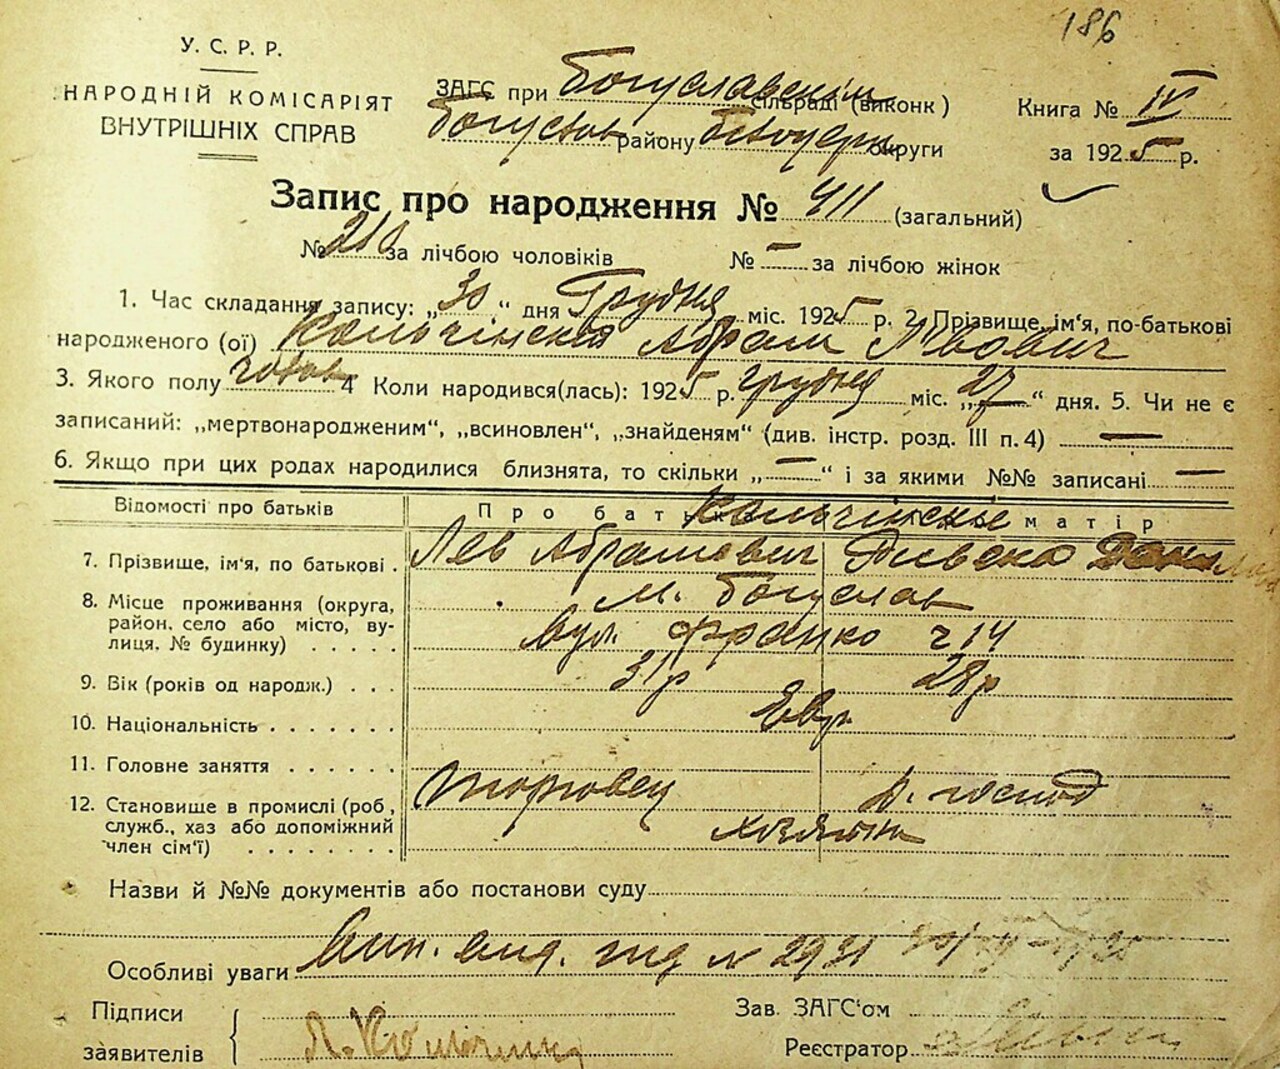 186
У. С. Р. Р.
НАРОДНІЙ КОМІСАРІЯТ
ВНУТРІШНІХ СПРАВ
ЗАГС при Богуславскім сільраді (виконк )
Богуслав району Білоцерк округи
Книга № IV
за 1925 р.
Запис про народження № 411 (загальний)
№ 210 за лічбою чоловіків № — за лічбою жінок
1. Час складання запису: „30 “ дня Грудня міс. 1925 р. 2. Прізвище, ім‘я, по-батькові
народженого (ої) Кольчінский Абрам Львович
3. Якого полу чолов 4 Коли народився(лась): 1925 р. грудня міс. „27“ дня. 5. Чи не є
записаний: „мертвонародженим“, „всиновлен“, „знайденям“ (див. інстр. розд. III п. 4) —
6. Якщо при цих родах народилися близнята, то скільки „—“ і за якими №№ записані —
Відомості про батьків Про батька матір
Кольчинские
7. Прізвище, ім‘я, по батькові . Лев Абрамович
8. Місце проживання (округа, м. Богуслав
район, село або місто, ву-
лиця, № будинку) . . . . . вул. Франко ч 14
9. Вік (років од народж.) . . . 31 р 28 р
10. Національність . . . . . . . Евр.
11. Головне заняття . . . . . .
12. Становище в промислі (роб, торговец д. господ
служб., хаз або допоміжний
член сім‘ї) . . . . . . . .
Назви й №№ документів або постанови суду
Особливі уваги Вип. вид. під № 2931
Підписи
заявителів Л. Кольчинский
Зав. ЗАГС‘ом
Реєстратор